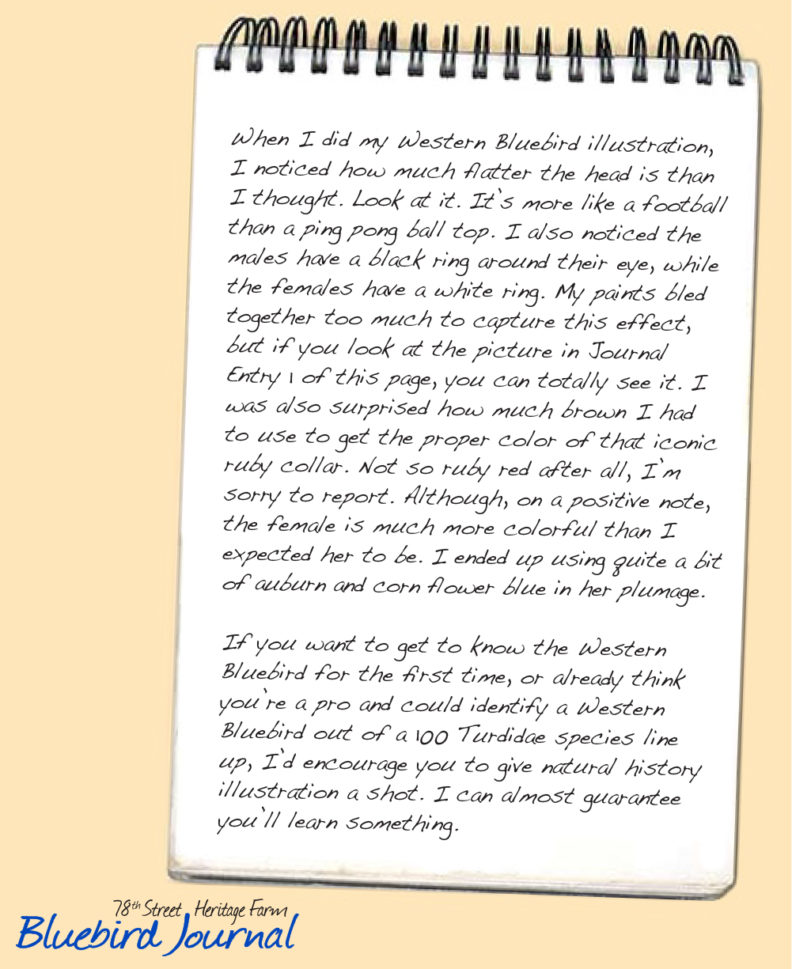 When I did my Western Bluebird illustration,
I noticed how much flatter the head is than
I thought. Look at it. It's more like a football
than a ping pong ball top. I also noticed the
males have a black ring around their eye, while
the females have a white ring. My paints bled
together too much to capture this effect,
but if you look at the picture in Journal
Entry 1 of this page, you can totally see it. I
was also surprised how much brown I had
to use to get the proper color of that iconic
ruby collar. Not so ruby red after all, I'm
sorry to report. Although, on a positive note,
the female is much more colorful than I
expected her to be. I ended up using quite a bit
of auburn and corn flower blue in her plumage.
If you want to get to know the Western
Bluebird for the first time, or already think
you're a pro and could identify a Western
Bluebird out of a 100 Turdidae species line
up, I'd encourage you to give natural history
illustration a shot. I can almost guarantee
you'll learn something.
78th Street Heritage Farm
Bluebird Journal